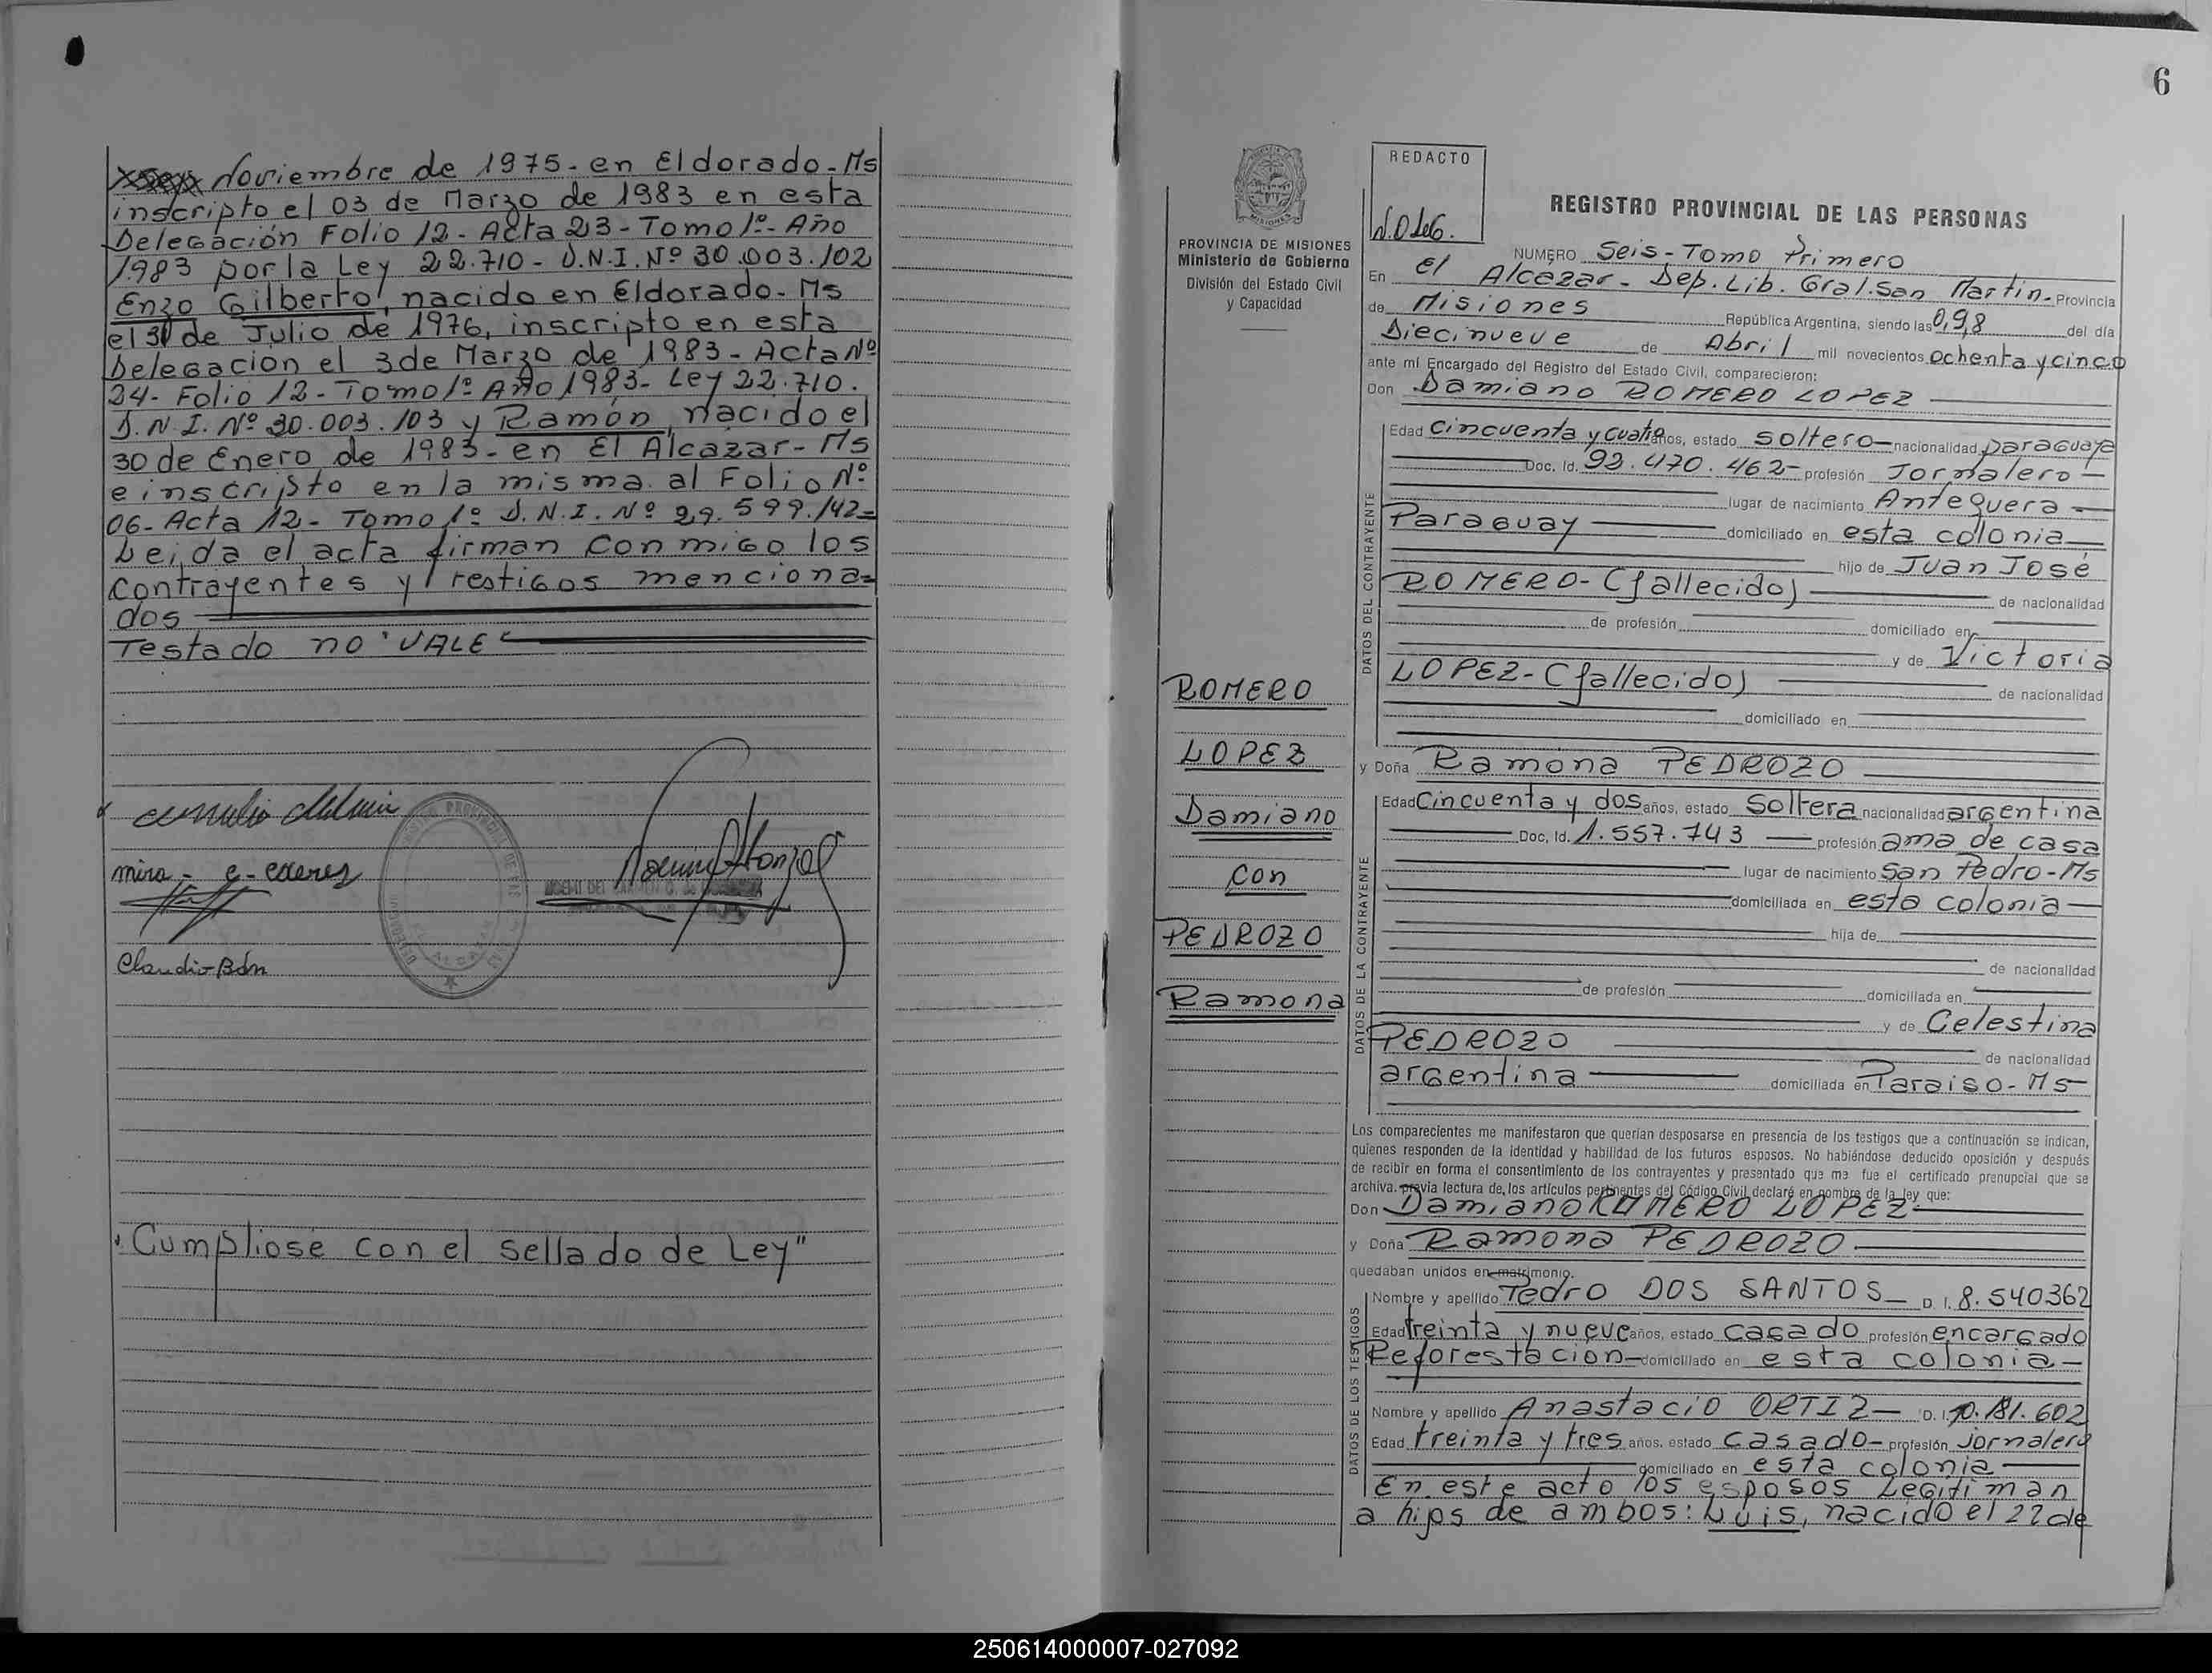 Noviembre de 1975 - en Eldorado - Ms
inscripto el 03 de Marzo de 1983 en esta
Delegación Folio 12 - Acta 23 - Tomo 1º - Año
1983 por la Ley 22.710 - D.N.I. Nº 30.003.102
Enzo Gilberto, nacido en Eldorado - Ms
el 30 de Julio de 1976, inscripto en esta
Delegacion el 3 de Marzo de 1983 - Acta Nº
24 - Folio 12 - Tomo 1º Año 1983 - Ley 22.710.
D.N.I. Nº 30.003.103 y Ramón, nacido el
30 de Enero de 1983 - en El Alcazar - Ms
e inscripto en la misma al Folio Nº
06 - Acta 12 - Tomo 1º D.N.I. Nº 29.599.142=
Leida el acta firman conmigo los
contrayentes y testigos menciona=
dos
Testado no "VALE"
mira - e - 
Claudio Bán
"Cumpliose con el sellado de Ley"
6
PROVINCIA DE MISIONES
Ministerio de Gobierno
División del Estado Civil
y Capacidad
REDACTO
REGISTRO PROVINCIAL DE LAS PERSONAS
NUMERO Seis - Tomo Primero
En El Alcazar - Dep. Lib. Gral. San Martin - Provincia
de Misiones República Argentina, siendo las 0,98 del día
Diecinueve de Abril mil novecientos ochenta y cinco
ante mí Encargado del Registro del Estado Civil, comparecieron:
Don Damiano ROMERO LOPEZ
DATOS DEL CONTRAYENTE
Edad cincuenta y cuatro años, estado soltero - nacionalidad paraguaya
Doc. Id. 92.470.462 - profesión Jornalero -
lugar de nacimiento Antequera -
Paraguay domiciliado en esta colonia
hijo de Juan José
ROMERO - (fallecido) de nacionalidad
de profesión domiciliado en
y de Victoria
LOPEZ - (fallecido) de nacionalidad
domiciliado en
ROMERO
LOPEZ
Damiano
con
PEDROZO
Ramona
y Doña Ramona PEDROZO
DATOS DE LA CONTRAYENTE
Edad Cincuenta y dos años, estado Soltera nacionalidad argentina
Doc. Id. 1.557.743 profesión ama de casa
lugar de nacimiento San Pedro - Ms
domiciliada en esta colonia
hija de
de nacionalidad
de profesión domiciliada en
y de Celestina
PEDROZO de nacionalidad
argentina domiciliada en Paraiso - Ms
Los comparecientes me manifestaron que querían desposarse en presencia de los testigos que a continuación se indican,
quienes responden de la identidad y habilidad de los futuros esposos. No habiéndose deducido oposición y después
de recibir en forma el consentimiento de los contrayentes y presentado que me fue el certificado prenupcial que se
archiva, previa lectura de los artículos pertinentes del Código Civil declaré en nombre de la ley que:
Don Damiano ROMERO LOPEZ
y Doña Ramona PEDROZO
quedaban unidos en matrimonio.
DATOS DE LOS TESTIGOS
Nombre y apellido Pedro DOS SANTOS - D. I. 8.540362
Edad treinta y nueve años, estado casado profesión encargado
Reforestacion - domiciliado en esta colonia -
Nombre y apellido Anastacio ORTIZ - D. I. 10.181.602
Edad treinta y tres años, estado casado - profesión jornalero
domiciliado en esta colonia
En este acto los esposos Legitiman
a hijos de ambos: Luis, nacido el 22 de
250614000007-027092